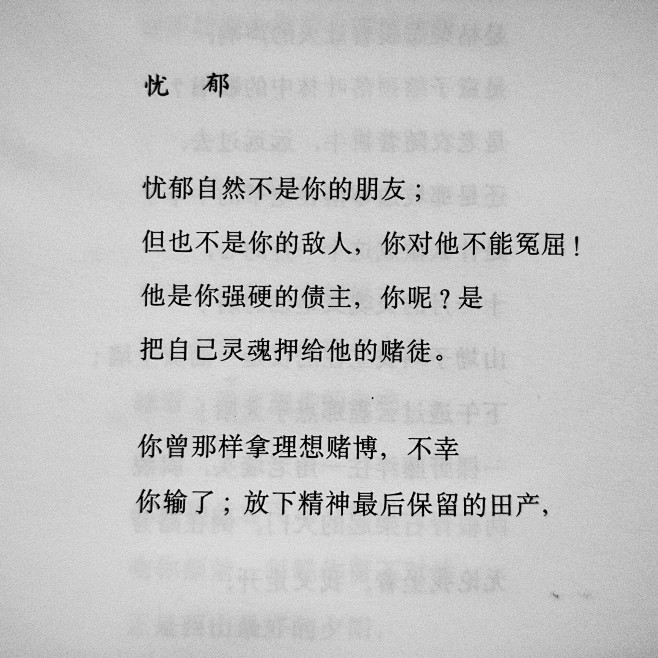 忧 郁
忧郁自然不是你的朋友；
但也不是你的敌人，你对他不能冤屈！
他是你强硬的债主，你呢？是
把自己灵魂押给他的赌徒。
你曾那样拿理想赌博，不幸
你输了；放下精神最后保留的田产，